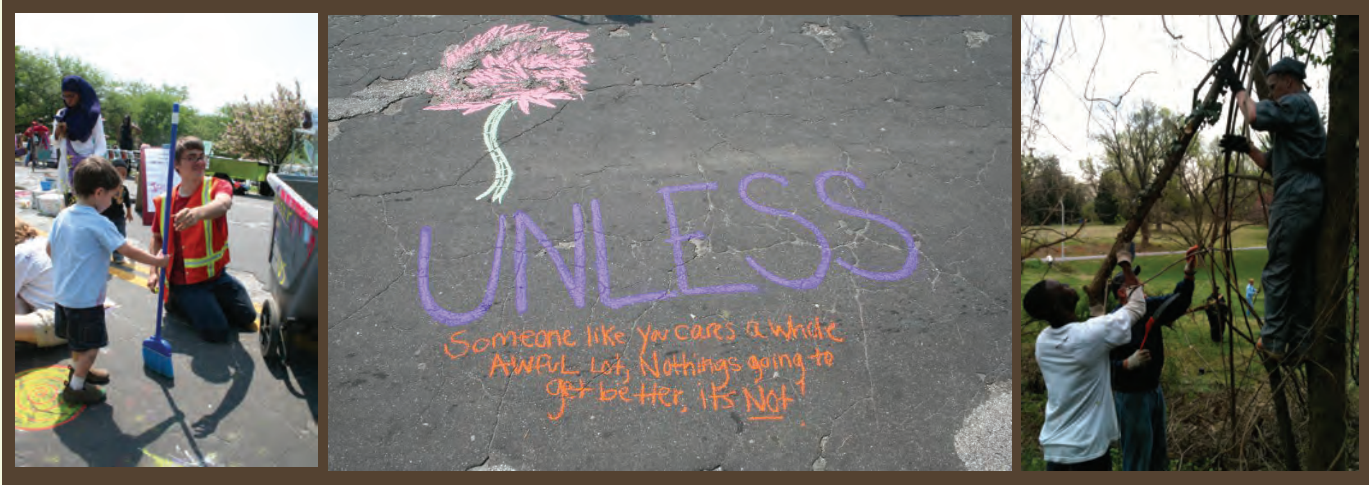 UNLESS
Someone like you cares a whole
AWFUL Lot, Nothings going to
get better, its Not!